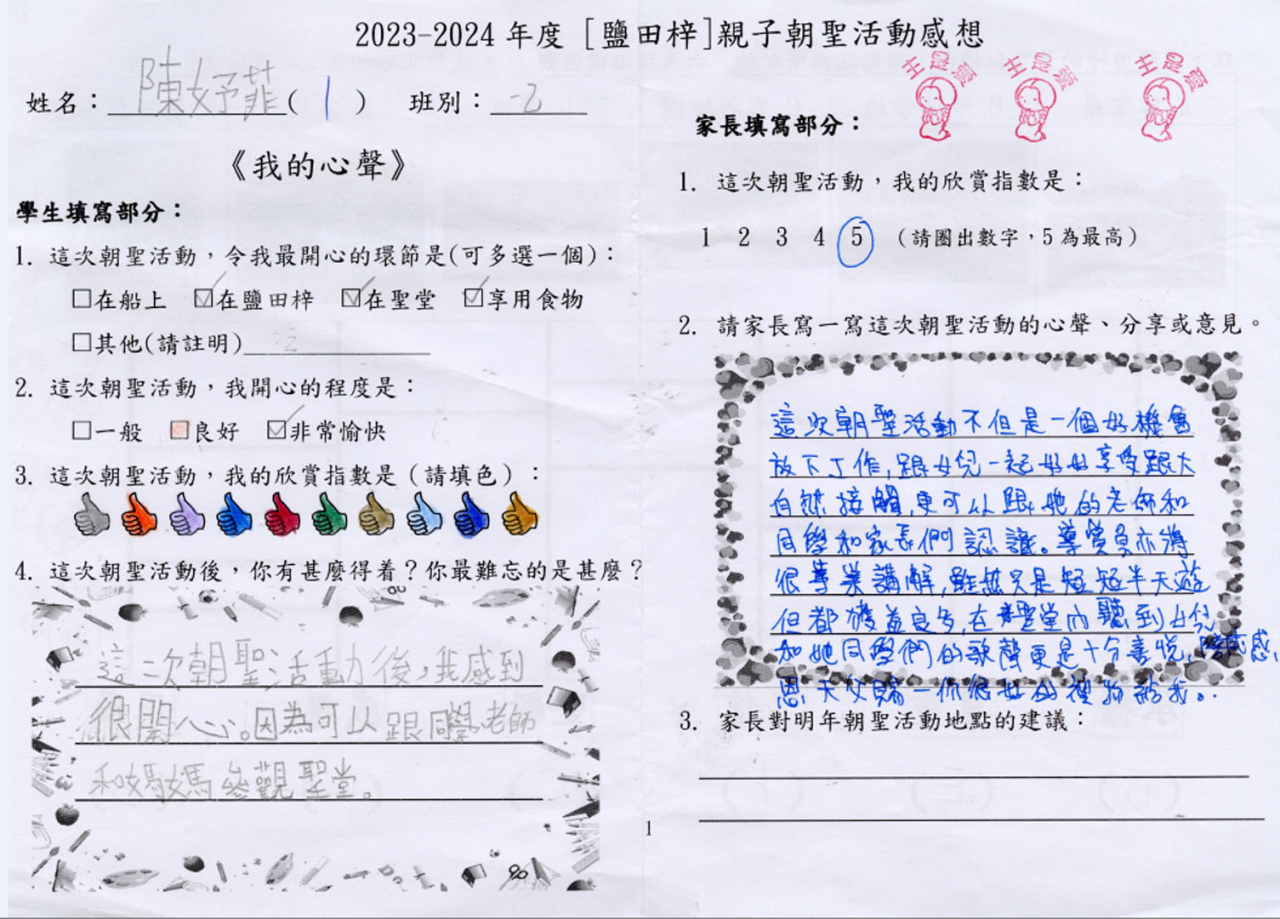 2023-2024 年度 [鹽田梓]親子朝聖活動感想
姓名：陳妤菲(1) 班別：一乙
《我的心聲》
學生填寫部分：
1. 這次朝聖活動，令我最開心的環節是(可多選一個)：
□在船上 ☑在鹽田梓 ☑在聖堂 ☑享用食物
□其他(請註明)
2. 這次朝聖活動，我開心的程度是：
□一般 □良好 ☑非常愉快
3. 這次朝聖活動，我的欣賞指數是（請填色）：
4. 這次朝聖活動後，你有甚麼得着？你最難忘的是甚麼？
這二次朝聖活動後，我感到
很開心。因為可以跟同學老師
和媽媽參觀聖堂。
主是愛 主是愛 主是愛
家長填寫部分：
1. 這次朝聖活動，我的欣賞指數是：
1 2 3 4 5 （請圈出數字，5 為最高）
2. 請家長寫一寫這次朝聖活動的心聲、分享或意見。
這次朝聖活動不但是一個好機會
放下工作，跟女兒一起好好享受跟大
自然接觸，更可以跟她的老師和
同學和家長們認識。導賞員亦得
很專業講解，雖然只是短短半天遊
但都獲益良多，在聖堂內聽到女兒
和她同學們的歌聲更是十分喜悅，感恩
天父賜一份很好的禮物給我。
3. 家長對明年朝聖活動地點的建議：
1